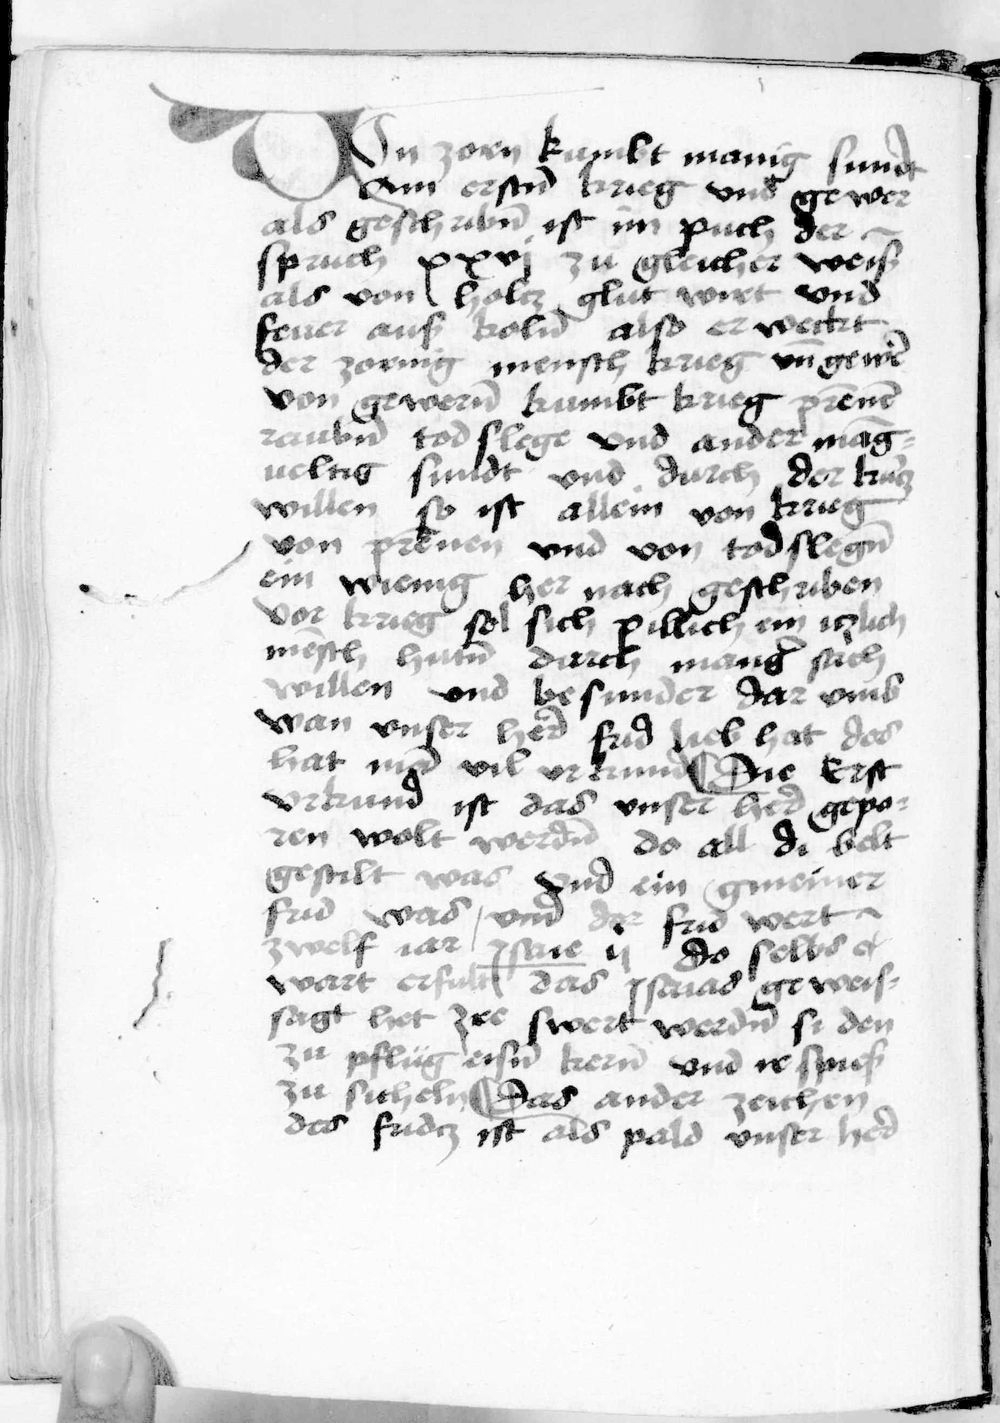 Von zorn kumbt manig sundt
Am̄ erstn̄ krieg vnd gewer
als geschribn̄ ist im puch der
spruch xxvj zu gleicher weiß
als von holcz glut wirt vnd
feuer auß koln̄ also erweckt
der zornig mensch krieg vn̄ gewer̄
von gewern̄ kumbt krieg prēnē
raubn̄ todslege vnd ander māg=
ueltig sundt vnd durch der kurcz
willen so ist allein von krieg
von prēnen vnd von todslegn̄
ein wienig her nach geschriben
vor krieg sol sich pillich ein iczlich
mēsch hutn̄ durch manger̄ sach
willen vnd besunder dar vmb
wan vnser her̄ frid lieb hat des
hat mā vil vrkund Die Erst
vrkund ist das vnser her̄ gepo=
ren wolt werdn̄ do all di belt
gestilt was vnd ein gmeiner
frid was / vnd der frid wert
zwelf iar Jsaie ij do selbs
wart erfult das Jsaias geweis=
sagt het Jre swert werdn̄ si den
zu pflüg eisn̄ kern̄ vnd ir spieß
zu sicheln Das ander zeichen
des fridcz ist als pald vnser her̄